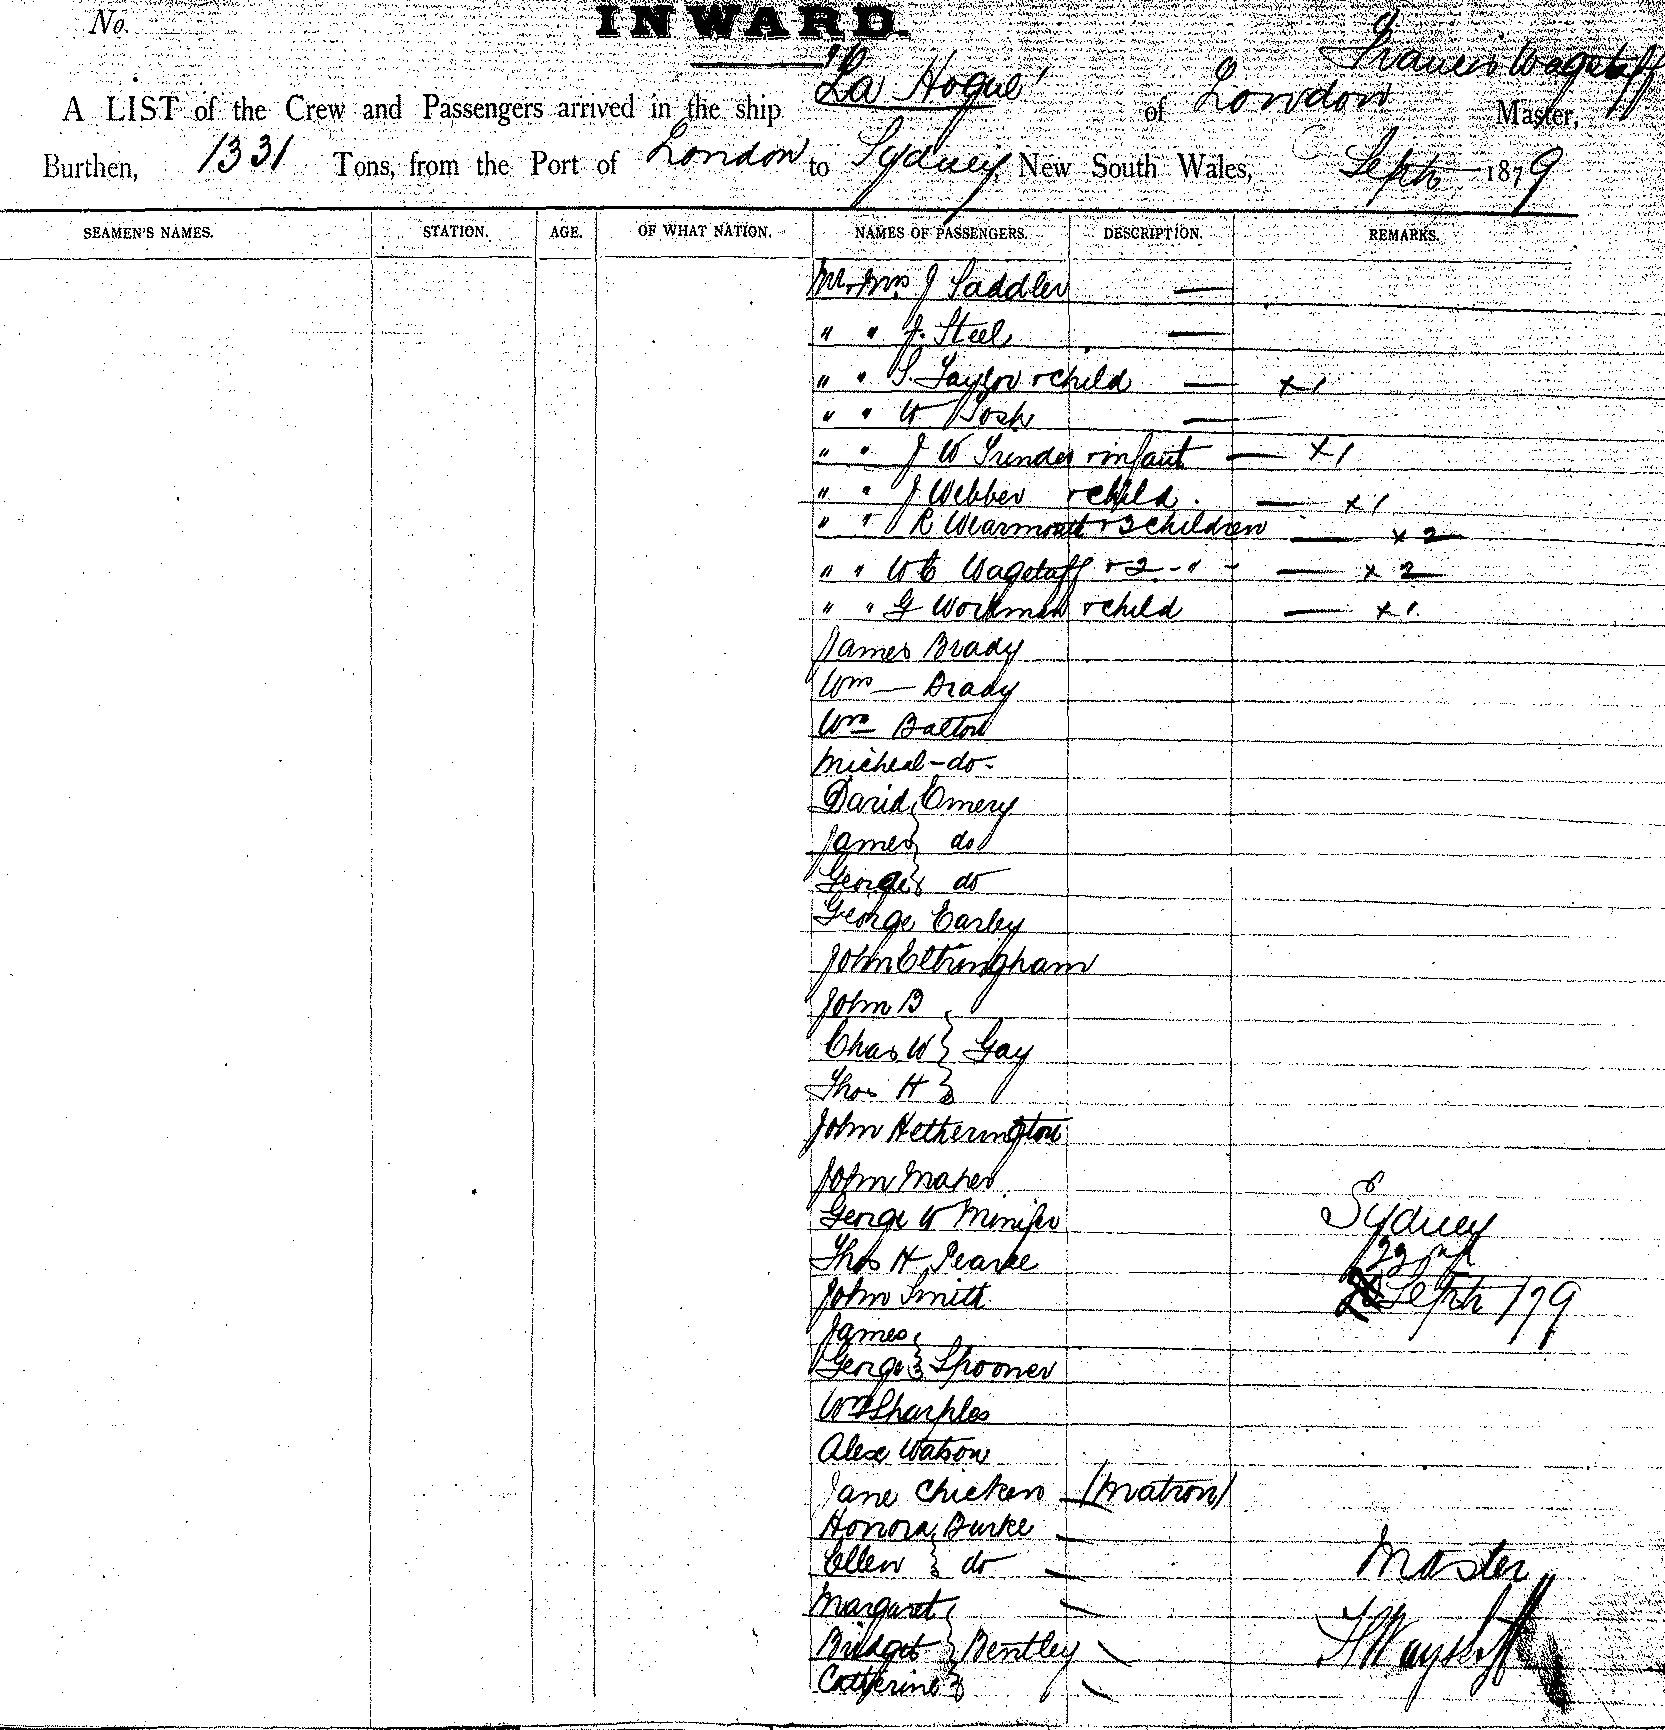 No.
INWARD.
A LIST of the Crew and Passengers arrived in the ship "La Hogue" of London Francis Wagstaff Master,
Burthen, 1331 Tons, from the Port of London to Sydney, New South Wales, Septr 1879
SEAMEN'S NAMES. STATION. AGE. OF WHAT NATION. NAMES OF PASSENGERS. DESCRIPTION. REMARKS.
Mr + Mrs J Saddler —
" " J. Steel —
" " S. Taylor + child — x 1
" " W Tosh —
" " J W Trender + infant — x 1
" " J Webber + child. — x 1
" " R Wearmouth + 3 children — x 2
" " W E Wagstaff + 2 - " - — x 2
" " G Workman + child — x 1.
James Brady
Wm — Brady
Wm Balton
Micheal - do -
David Emery
James do
George do
George Earley
John Eltringham
John B
Chas W } Gay
Thos H
John Hetherington
John Maher
George W Minifer
Thos H Pearce
John Smith
James
George } Spooner
Wm Sharples
Alex Watson
Jane Chicken — (Matron)
Honora Burke —
Ellen } do —
Margaret
Bridget } Bentley
Catherine
Sydney
22nd
Septr /79
Master
F Wagstaff